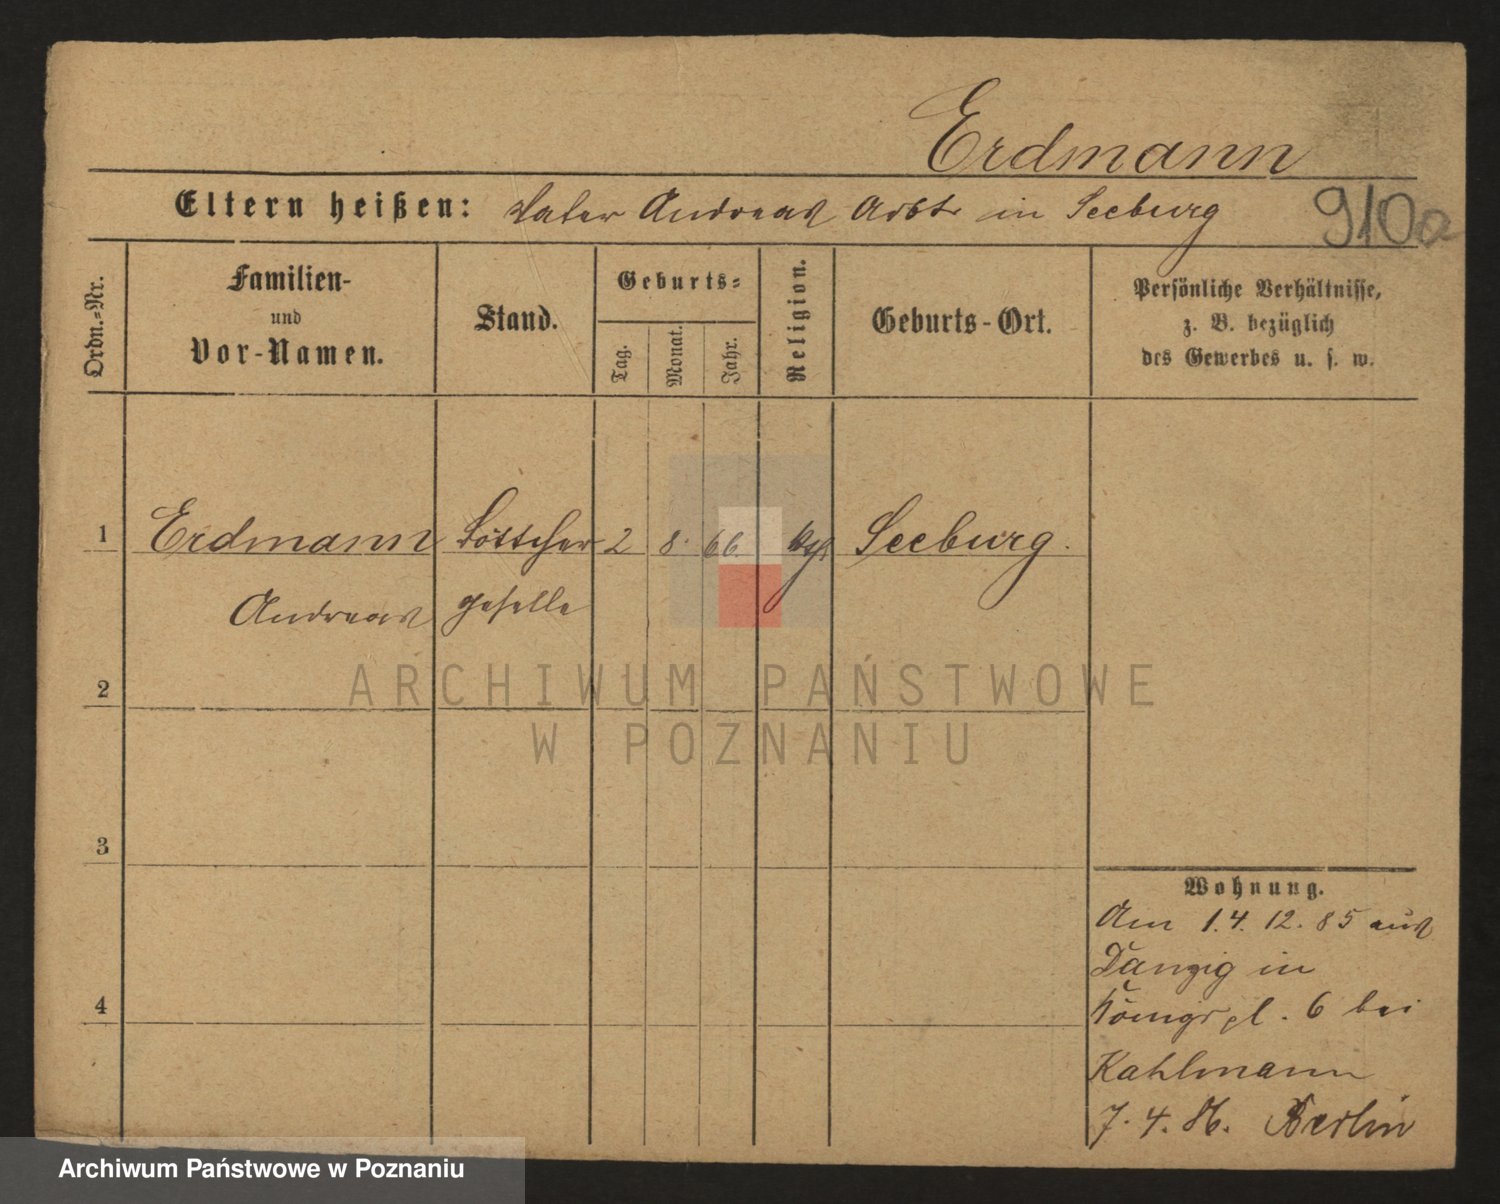 Erdmann
Eltern heißen: Vater Andreas Arbtr in Seeburg
910a
Ordn.-Nr.
Familien-
und
Vor-Namen.
Stand.
Geburts-
Tag.
Monat.
Jahr.
Religion.
Geburts-Ort.
Persönliche Verhältnisse,
z. B. bezüglich
des Gewerbes u. s. w.
1 Erdmann Böttcher 2 8. 66. Seeburg.
Andreas geselle
2
ARCHIWUM PAŃSTWOWE
W POZNANIU
3
4
Wohnung.
Am 14. 12. 85 aus
Danzig in
Königspl. 6 bei
Kahlmann
7. 4. 86. Berlin
Archiwum Państwowe w Poznaniu